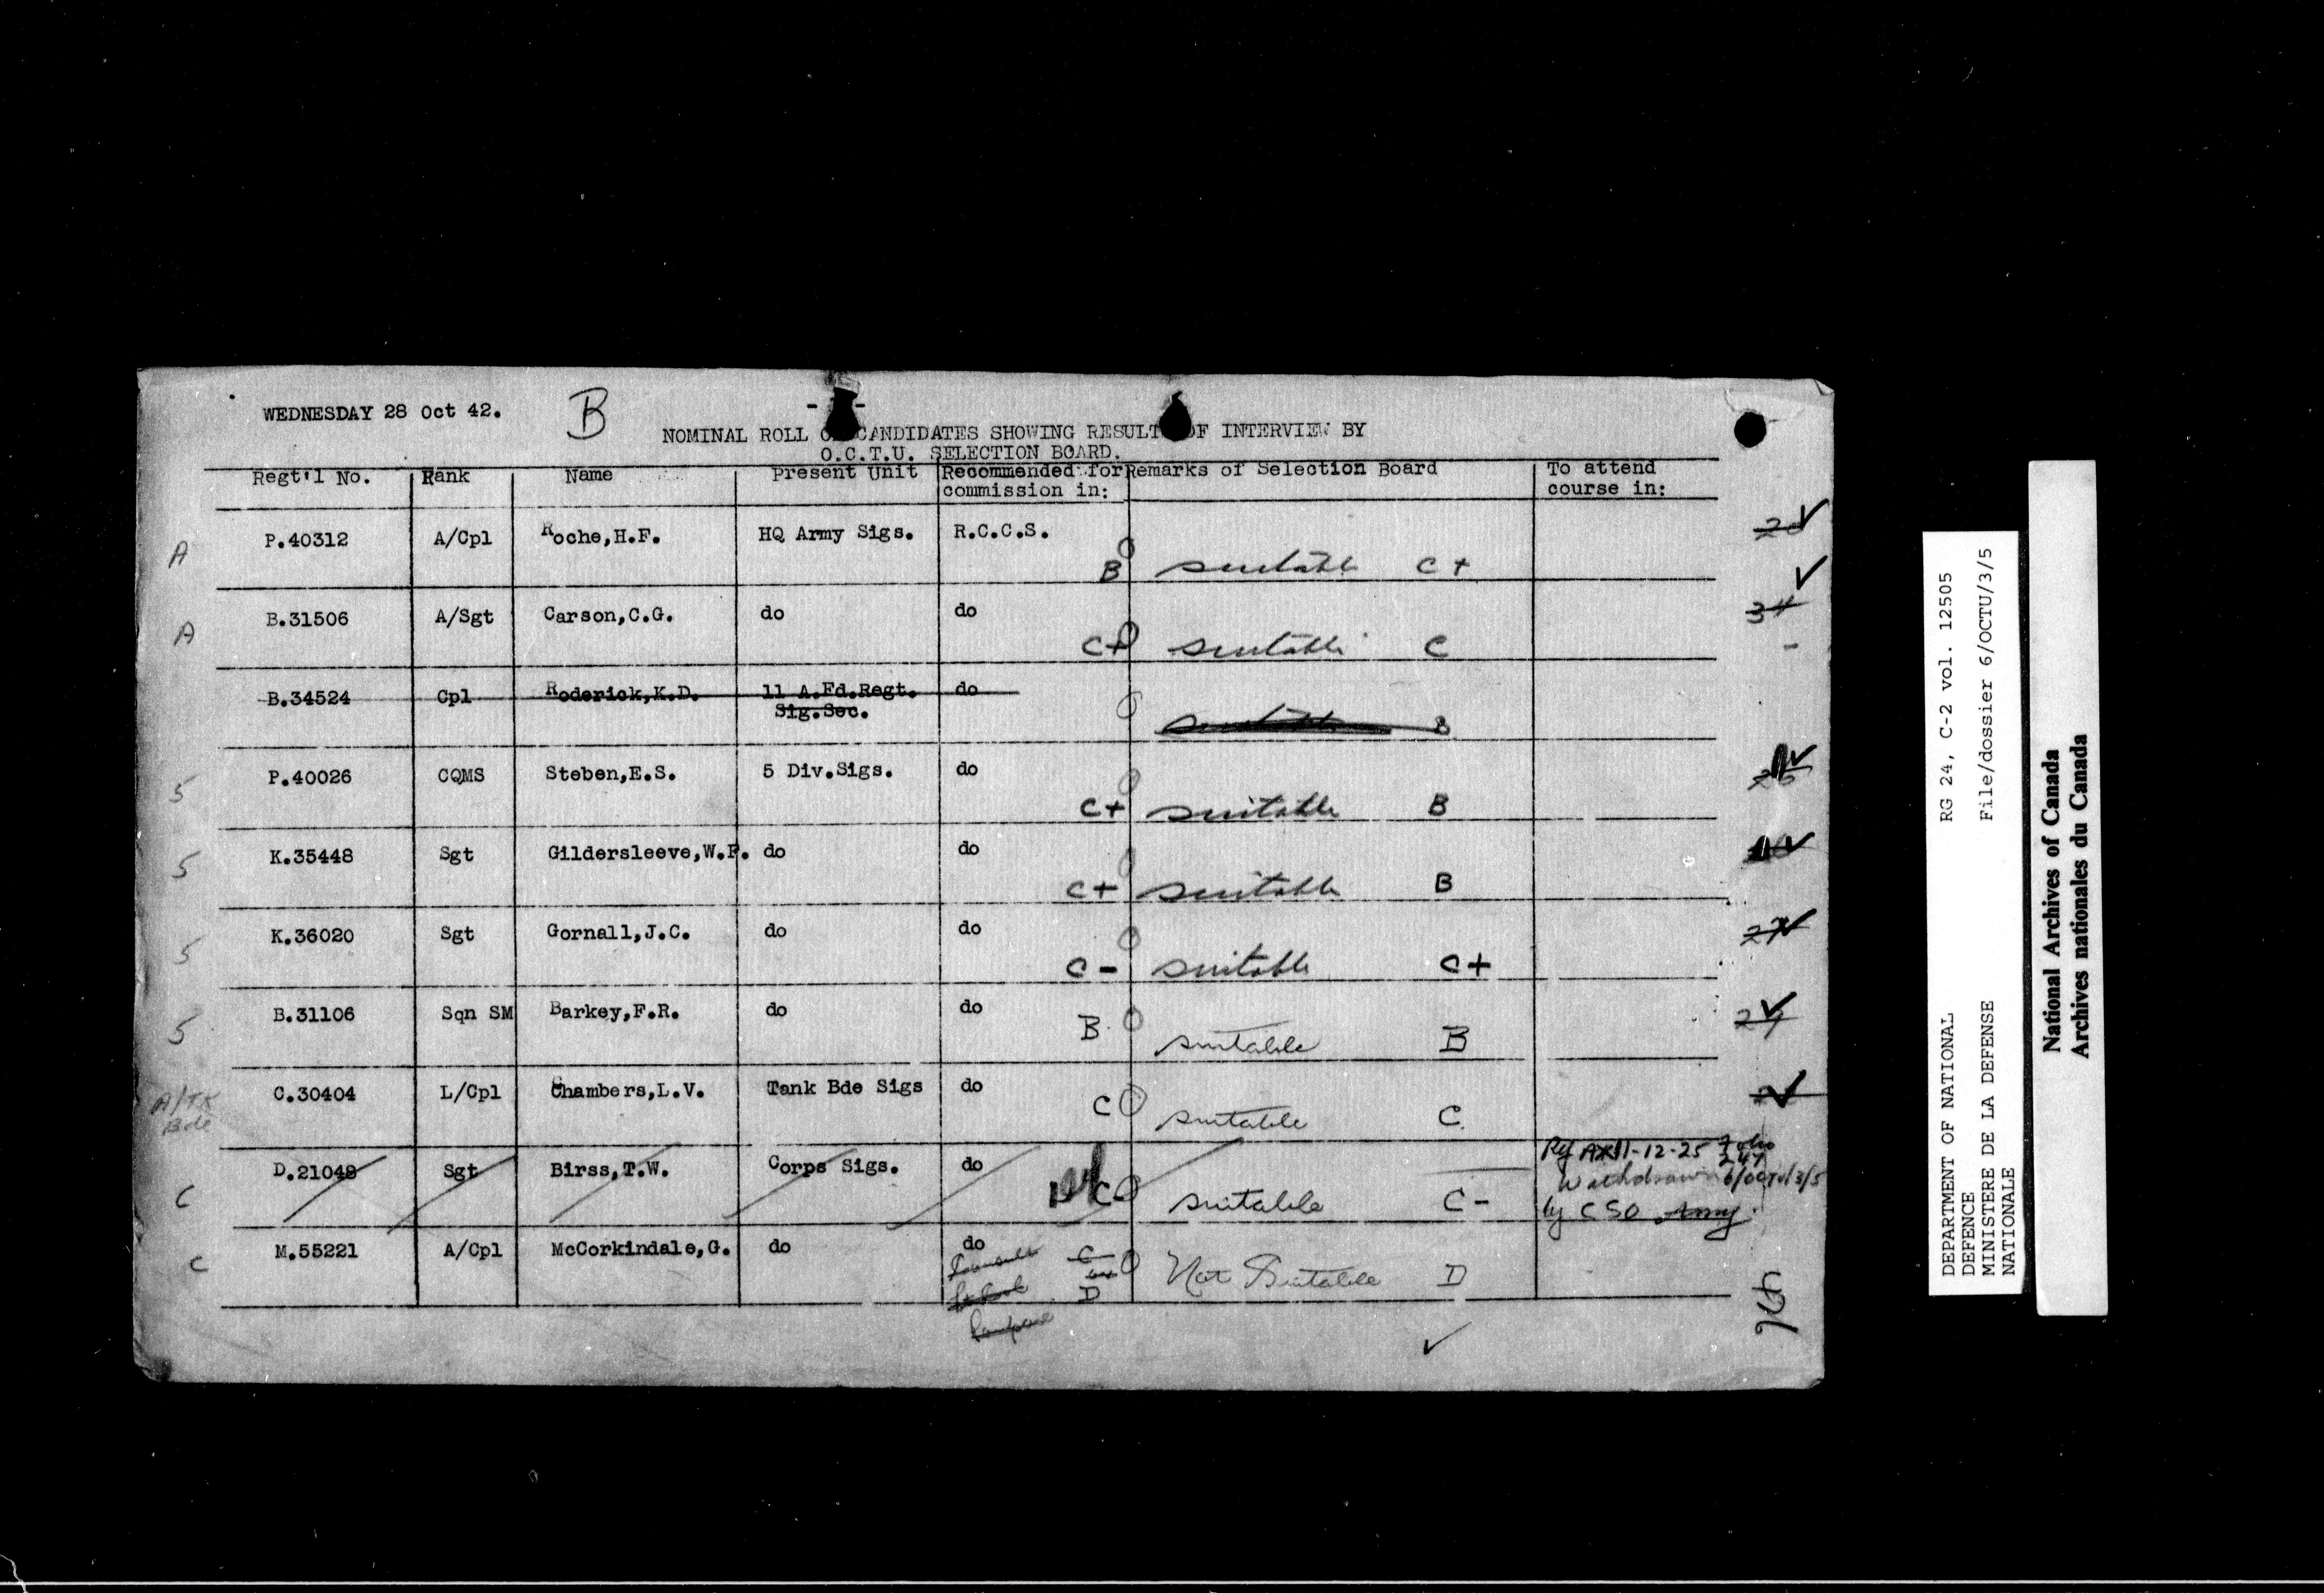 WEDNESDAY 28 Oct 42. B
NOMINAL ROLL CANDIDATES SHOWING RESULT OF INTERVIEW BY
O.C.T.U. SELECTION BOARD.
Regt'l No. Rank Name Present Unit Recommended for Remarks of Selection Board To attend
commission in: course in:
A P.40312 A/Cpl Roche,H.F. HQ Army Sigs. R.C.C.S.
B suitable C+
A B.31506 A/Sgt Carson,C.G. do do 34
C+ suitable C
B.34524 Cpl Roderick,K.D. 11 A.Fd.Regt. do
Sig.Sec. B
5 P.40026 CQMS Steben,E.S. 5 Div.Sigs. do
C+ suitable B
5 K.35448 Sgt Gildersleeve,W.F. do do
C+ suitable B
5 K.36020 Sgt Gornall,J.C. do do 27
C- suitable C+
5 B.31106 Sqn SM Barkey,F.R. do do
B suitable B
A/TK Bde C.30404 L/Cpl Chambers,L.V. Tank Bde Sigs do
C suitable C
C D.21048 Sgt Birss,T.W. Corps Sigs. do
C- suitable C-
Ref 11-12-25 Folio
247
Withdrawn 6/OCTU/3/5
by CSO Army.
C M.55221 A/Cpl McCorkindale,G. do do
C
D Not Suitable D
DEPARTMENT OF NATIONAL RG 24, C-2 vol. 12505
DEFENCE
MINISTERE DE LA DEFENSE File/dossier 6/OCTU/3/5
NATIONALE
National Archives of Canada
Archives nationales du Canada